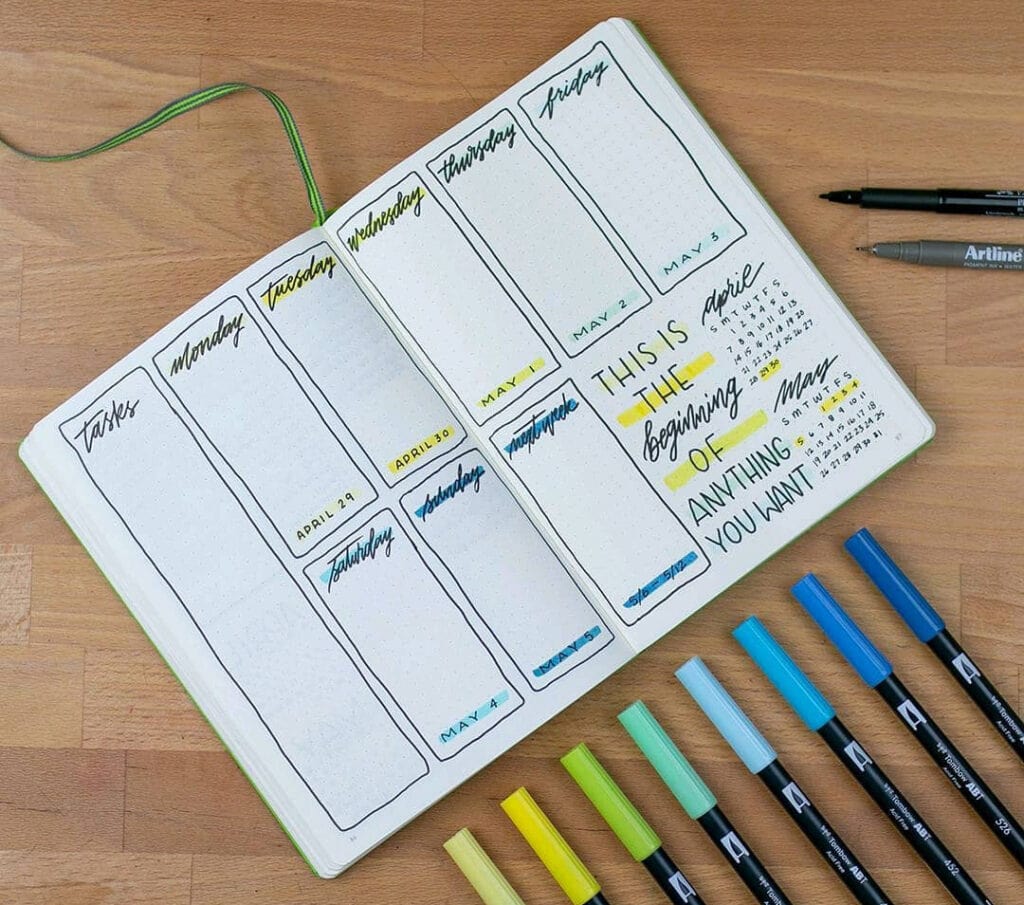 tasks
monday
APRIL 29
tuesday
APRIL 30
wednesday
MAY 1
thursday
MAY 2
friday
MAY 3
saturday
MAY 4
sunday
MAY 5
next week
5/6 - 5/12
THIS IS
THE
beginning
OF
ANYTHING
YOU WANT
april
S M T W T F S
1 2 3 4 5 6
7 8 9 10 11 12 13
14 15 16 17 18 19 20
21 22 23 24 25 26 27
28 29 30
May
S M T W T F S
1 2 3 4
5 6 7 8 9 10 11
12 13 14 15 16 17 18
19 20 21 22 23 24 25
26 27 28 29 30 31
Artline
PIGMENT INK
Tombow ABT
Acid Free
526
Tombow ABT
Acid Free
452
Tombow ABT
Acid Free